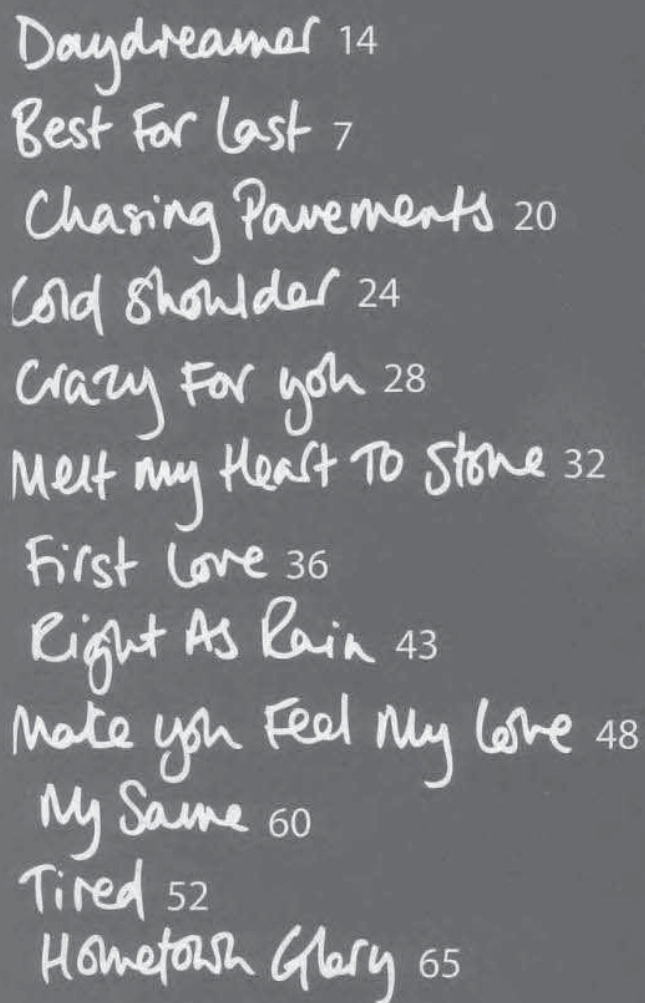 Daydreamer 14
Best For Last 7
Chasing Pavements 20
Cold Shoulder 24
Crazy For you 28
Melt my Heart To Stone 32
First Love 36
Right As Rain 43
Make you Feel My Love 48
My Same 60
Tired 52
Hometown Glory 65